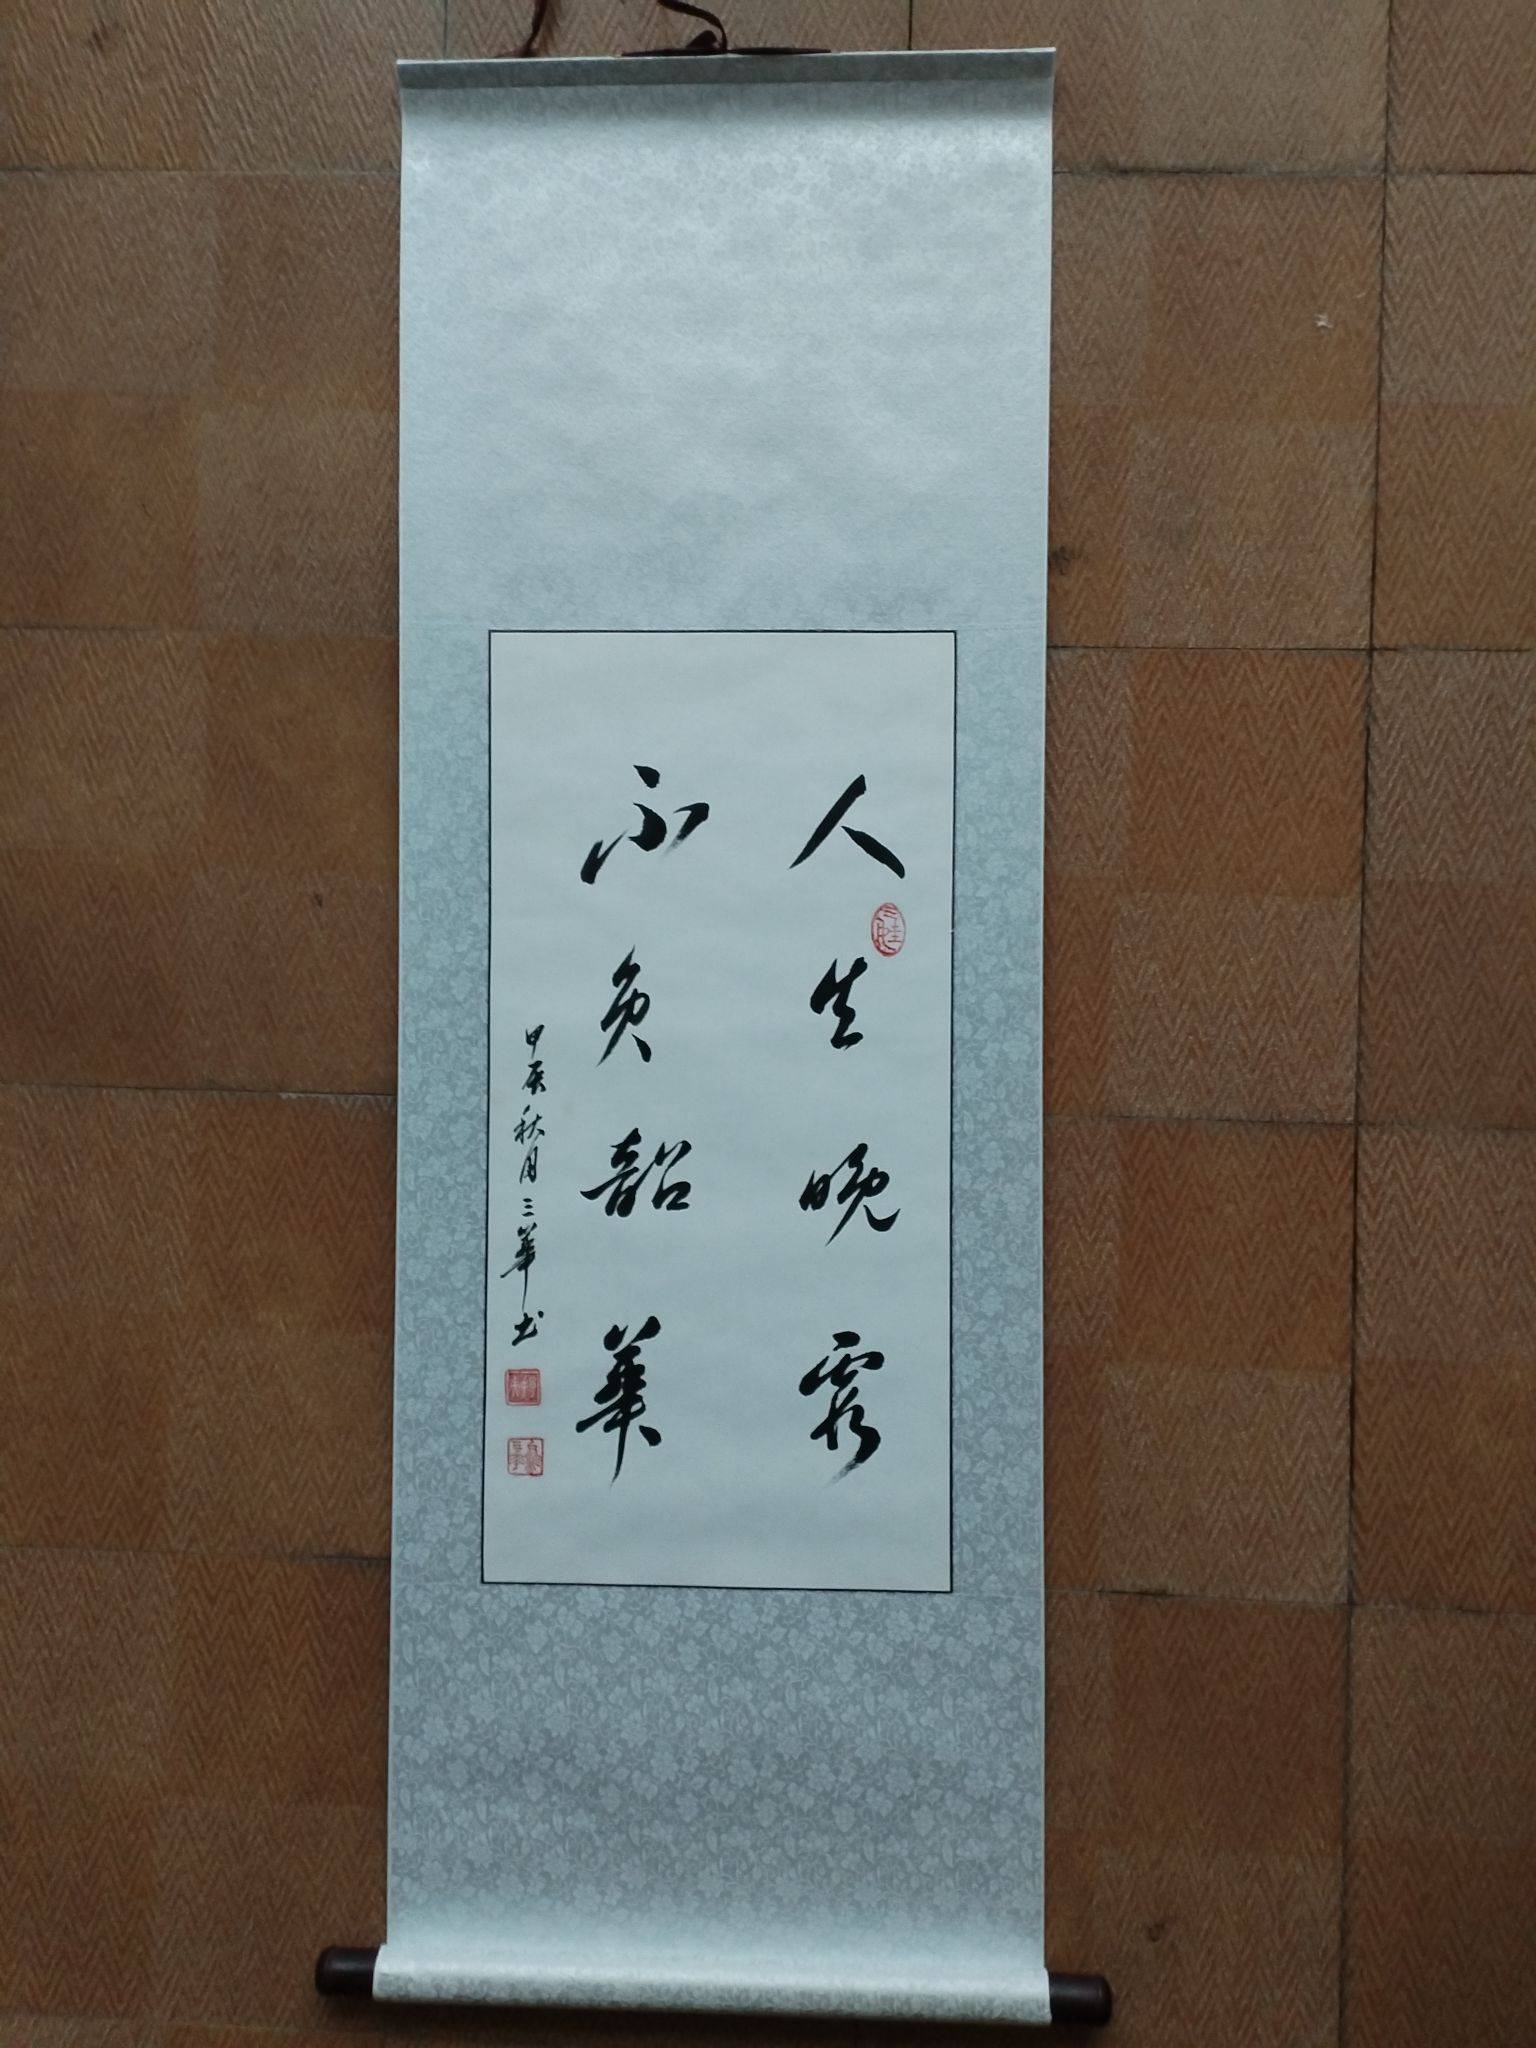 人生晚霞
不负韶華
甲辰秋月三華书